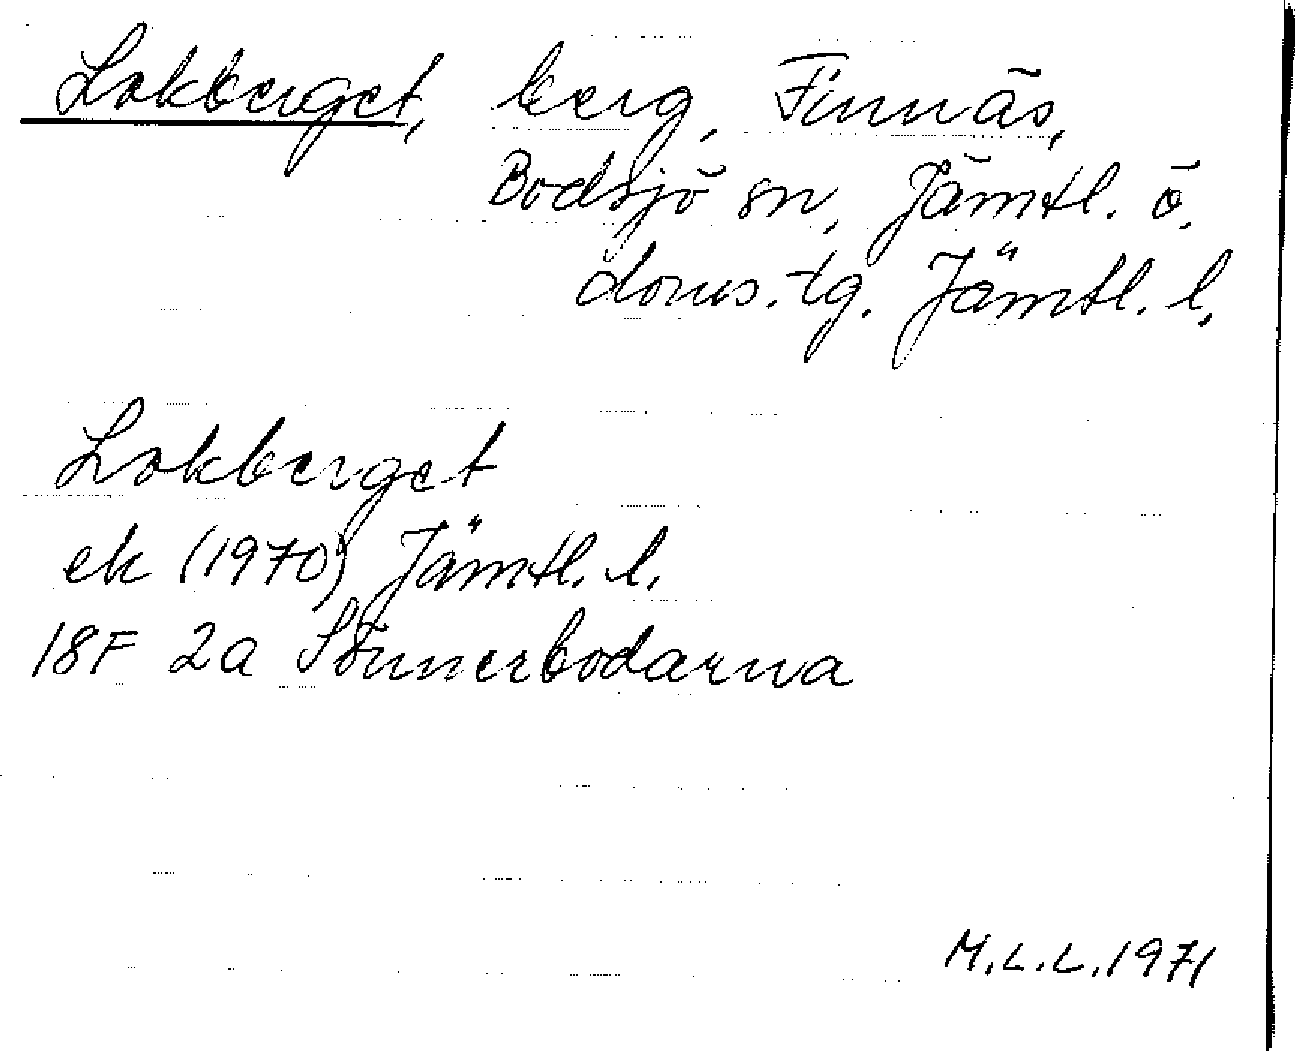 Lokberget, berg, Finnäs,
Bodsjö sn, Jämtl. ö.
doms.tg. Jämtl. l.
Lokberget
ek (1970) Jämtl. l.
18F 2a Sönnerbodarna
M.L.L. 1971